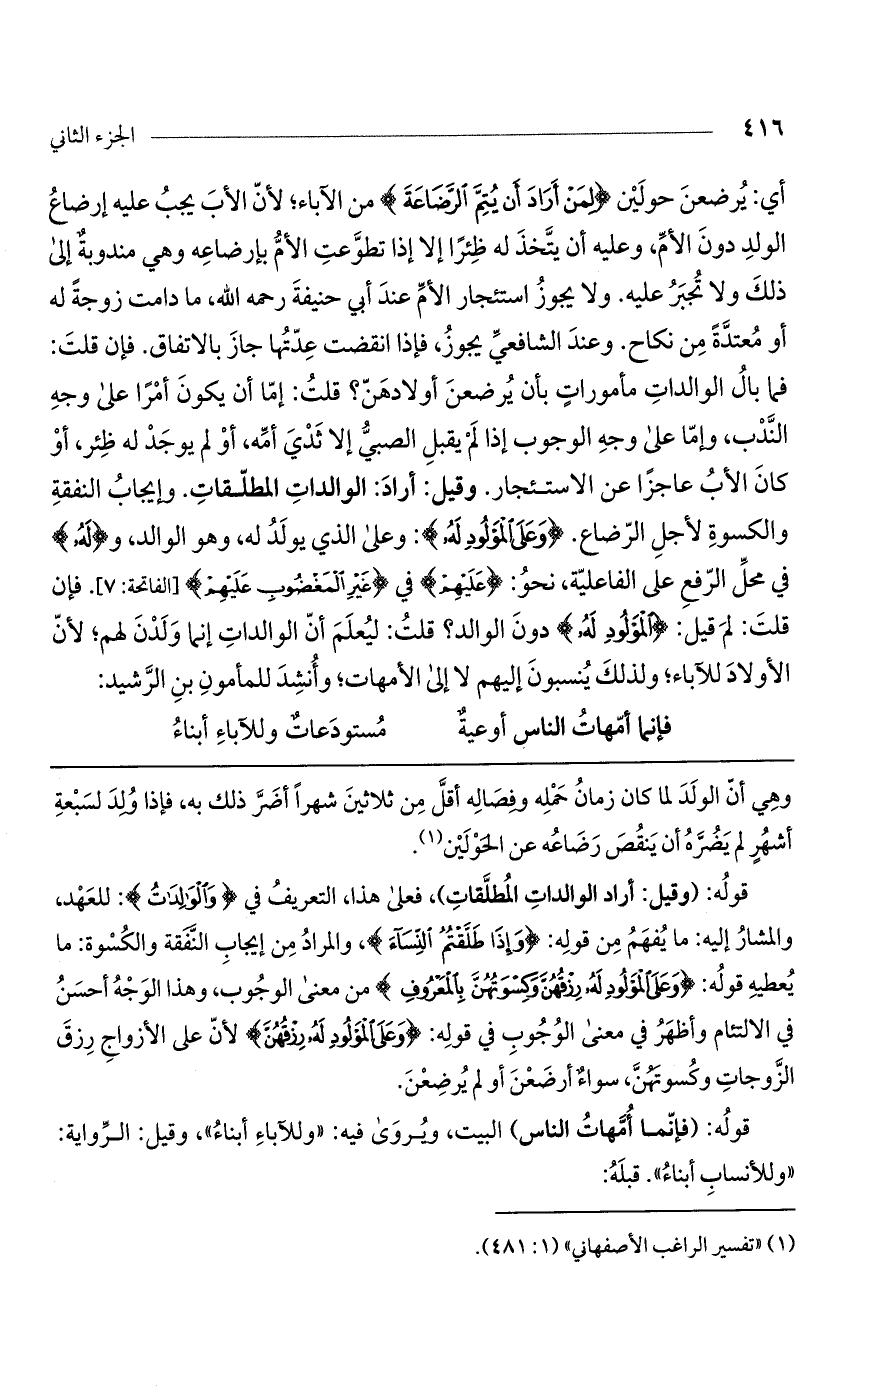 ٤١٦ الجزء الثاني
أي: يُرضعنَ حولَيْن ﴿لِمَنْ أَرَادَ أَن يُتِمَّ ٱلرَّضَاعَةَ﴾ من الآباء؛ لأنّ الأبَ يجبُ عليه إرضاعُ
الولدِ دونَ الأمِّ، وعليه أن يتَّخذَ له ظِئرًا إلا إذا تطوَّعتِ الأمُّ بإرضاعِه وهي مندوبةٌ إلىٰ
ذلكَ ولا تُجبَرُ عليه. ولا يجوزُ استئجار الأمِّ عندَ أبي حنيفةَ رحمه الله، ما دامت زوجةً له
أو مُعتدَّةً مِن نكاح. وعندَ الشافعيِّ يجوزُ، فإذا انقضت عِدّتُها جازَ بالاتفاق. فإن قلتَ:
فما بالُ الوالداتِ مأموراتٍ بأن يُرضعنَ أولادهَنّ؟ قلتُ: إمّا أن يكونَ أمْرًا علىٰ وجهِ
النَّدْب، وإمّا علىٰ وجهِ الوجوب إذا لَمْ يقبلِ الصبيُّ إلا ثَدْيَ أمِّه، أوْ لم يوجَدْ له ظِئر، أوْ
كانَ الأبُ عاجزًا عن الاستئجار. وقيل: أرادَ: الوالداتِ المطلّقاتِ. وإيجابُ النفقةِ
والكسوةِ لأجلِ الرّضاع. ﴿وَعَلَى ٱلْمَوْلُودِ لَهُۥ﴾: وعلىٰ الذي يولَدُ له، وهو الوالد، و﴿لَهُۥ﴾
في محلِّ الرّفعِ على الفاعليّة، نحوُ: ﴿عَلَيْهِمْ﴾ في ﴿غَيْرِ ٱلْمَغْضُوبِ عَلَيْهِمْ﴾ [الفاتحة: ٧]. فإن
قلتَ: لِمَ قيل: ﴿ٱلْمَوْلُودِ لَهُۥ﴾ دونَ الوالد؟ قلتُ: ليُعلَمَ أنّ الوالداتِ إنما وَلَدْنَ لهم؛ لأنّ
الأولادَ للآباء؛ ولذلكَ يُنسبونَ إليهم لا إلىٰ الأمهات؛ وأُنشِدَ للمأمونِ بنِ الرَّشيد:
فإنما أمّهاتُ الناسِ أوعيةٌ مُستودَعاتٌ وللآباءِ أبناءُ
وهِي أنّ الولَدَ لما كان زمانُ حَمْلِه وفِصَالِه أقلَّ مِن ثلاثينَ شهراً أضَرَّ ذلك به، فإذا وُلِدَ لسَبْعةِ
أشهُرٍ لم يَضُرَّهُ أن يَنقُصَ رَضَاعُه عن الحَوْلَيْن(١).
قولُه: (وقيل: أراد الوالداتِ المُطلَّقاتِ)، فعلىٰ هذا، التعريفُ في ﴿وَٱلْوَٰلِدَٰتُ﴾: للعَهْد،
والمشارُ إليه: ما يُفهَمُ مِن قولِه: ﴿وَإِذَا طَلَّقْتُمُ ٱلنِّسَآءَ﴾، والمرادُ مِن إيجابِ النَّفَقة والكُسْوة: ما
يُعطيهِ قولُه: ﴿وَعَلَى ٱلْمَوْلُودِ لَهُۥ رِزْقُهُنَّ وَكِسْوَتُهُنَّ بِٱلْمَعْرُوفِ﴾ من معنىٰ الوجوب، وهذا الوَجْهُ أحسَنُ
في الالتئام وأظهَرُ في معنىٰ الوُجُوبِ في قولِه: ﴿وَعَلَى ٱلْمَوْلُودِ لَهُۥ رِزْقُهُنَّ﴾ لأنّ على الأزواجِ رِزقَ
الزَّوجاتِ وكُسوتَهُنَّ، سواءٌ أرضَعْنَ أو لم يُرضِعْنَ.
قولُه: (فإنّما أُمَّهاتُ الناس) البيت، ويُروَىٰ فيه: «وللآباءِ أبناءُ»، وقيل: الرِّواية:
«وللأنسابِ أبناءُ». قبلَهُ:
(١) «تفسير الراغب الأصفهاني» (١: ٤٨١).